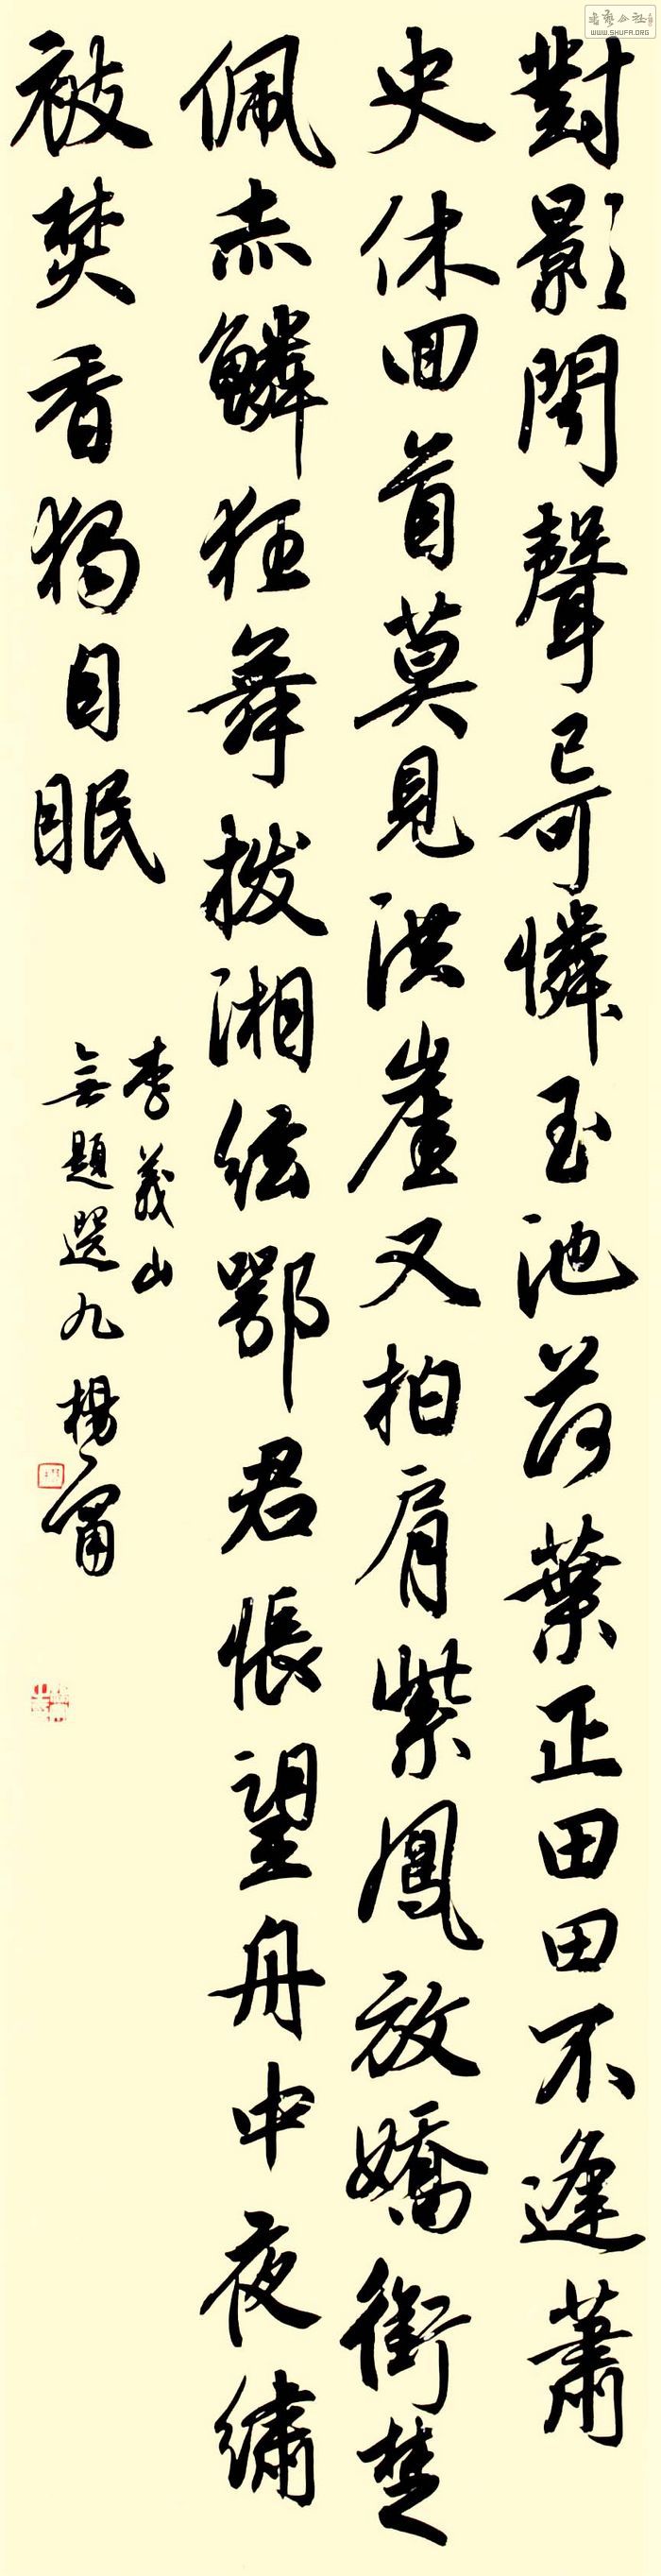 對影聞聲已可憐玉池荷葉正田田不逢蕭
史休回首莫見洪崖又拍肩紫鳳放嬌銜楚
佩赤鱗狂舞撥湘絃鄂君悵望舟中夜繡
被焚香獨自眠
李義山
無題選九楊
WWW.SHUFA.ORG